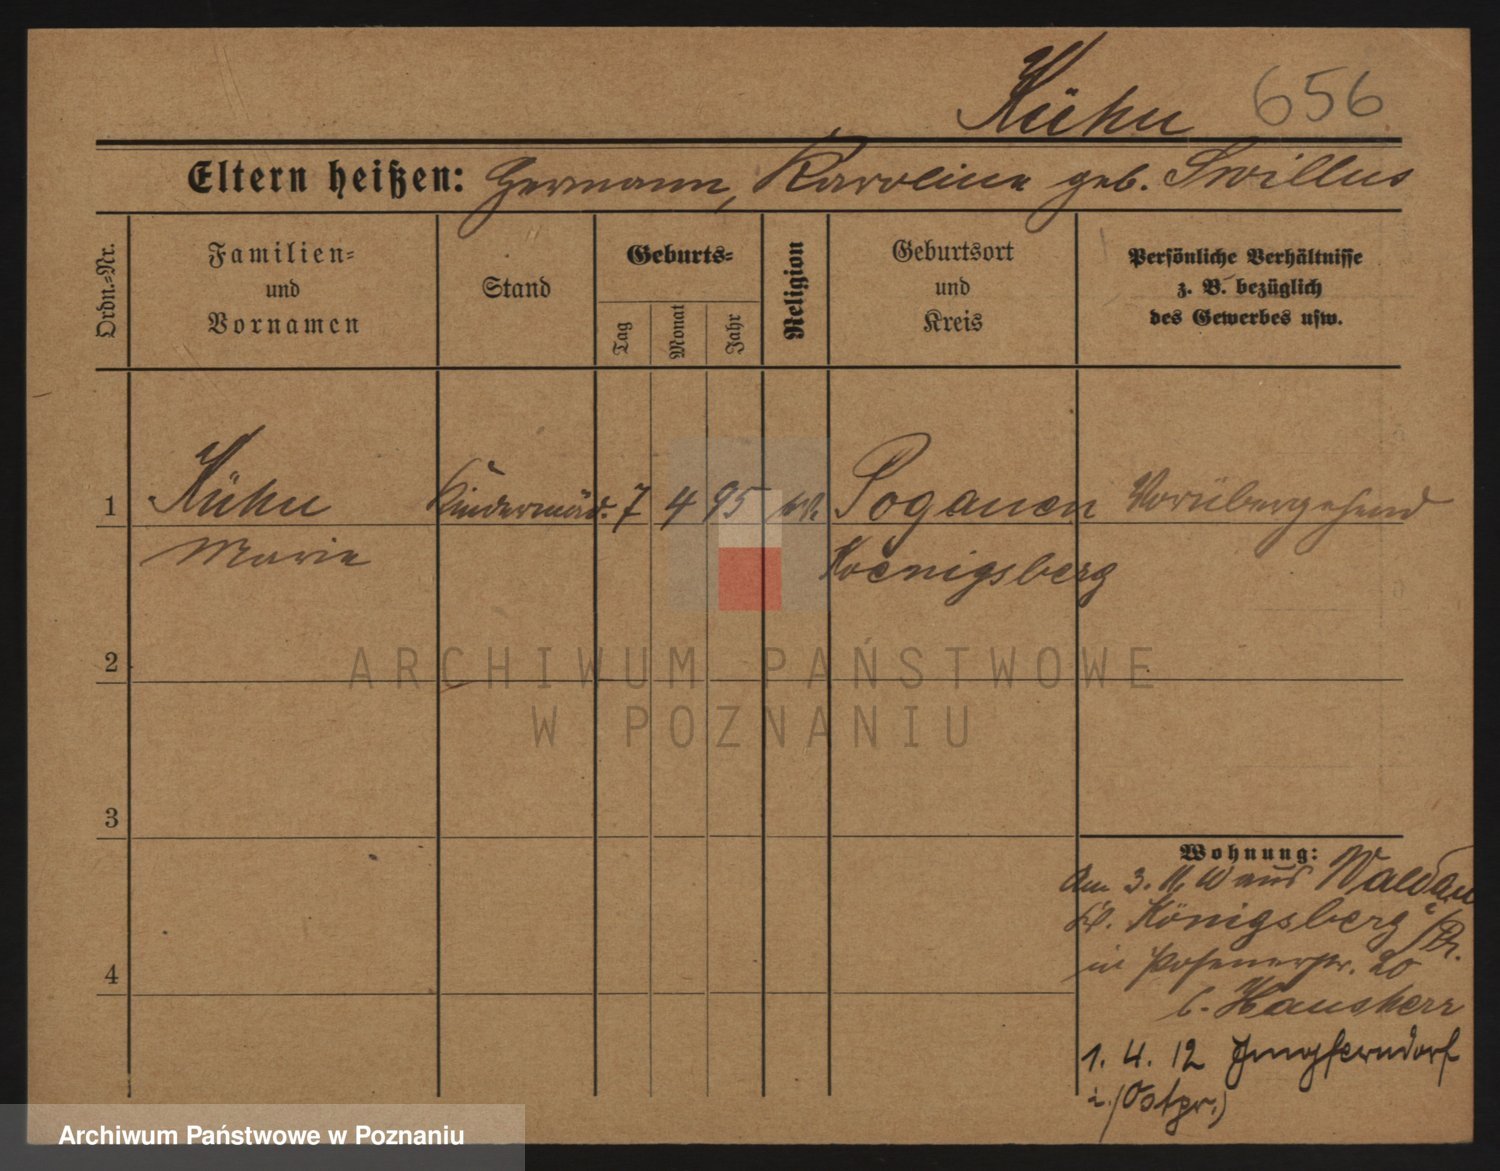 Kühn 656
Eltern heißen: Hermann, Karoline geb. Swillus
Ordn.-Nr.
Familien-
und
Vornamen
Stand
Geburts-
Tag
Monat
Jahr
Religion
Geburtsort
und
Kreis
Persönliche Verhältnisse
z. B. bezüglich
des Gewerbes usw.
1 Kühn Kindermäd. 7 4 95 Poganen Vorübergehend
Marie Koenigsberg
2
ARCHIWUM PAŃSTWOWE
W POZNANIU
3
Wohnung:
Am 3. 11. aus Waldau
Kr. Königsberg i/Pr.
in Posenerstr. 20
b. Hausherr
4
1. 4. 12 Jungferndorf
i. (Ostpr.)
Archiwum Państwowe w Poznaniu